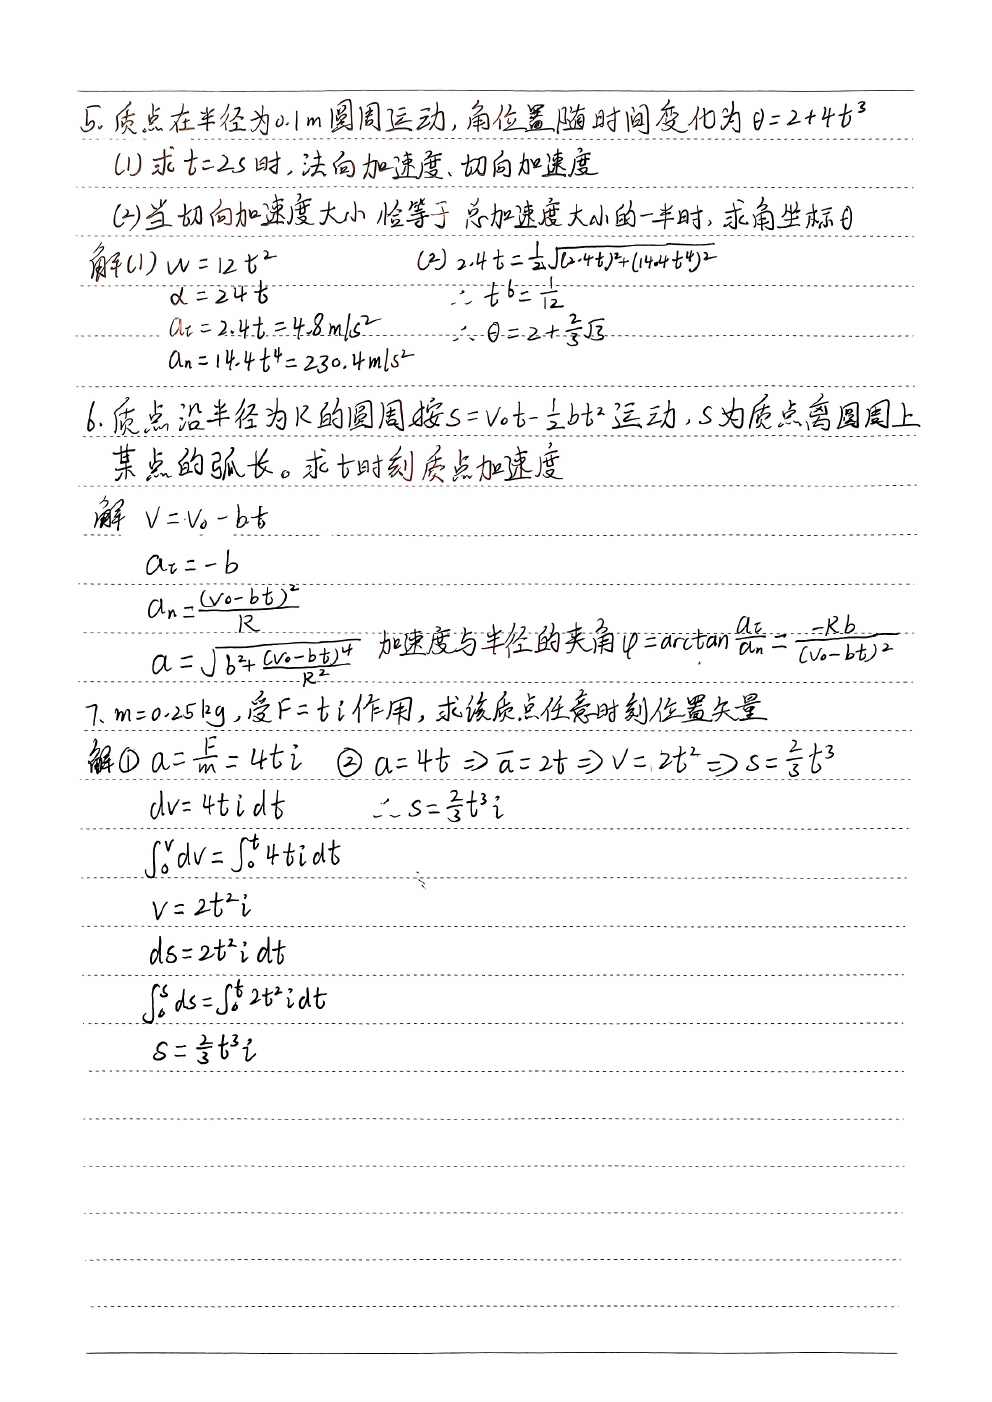 5. 质点在半径为0.1m圆周运动,角位置随时间变化为θ=2+4t³
(1)求t=2s时,法向加速度、切向加速度
(2)当切向加速度大小恰等于总加速度大小的一半时,求角坐标θ
解(1) w=12t² (2) 2.4t=½√((2.4t)²+(14.4t⁴)²)
α=24t ∴ t⁶=1/12
aτ=2.4t=4.8m/s² ∴ θ=2+⅔√3
an=14.4t⁴=230.4m/s²
6. 质点沿半径为R的圆周按S=V₀t-½bt²运动,S为质点离圆周上
某点的弧长。求t时刻质点加速度
解 V=V₀-bt
aτ=-b
an=(V₀-bt)²/R
a=√(b²+(V₀-bt)⁴/R²) 加速度与半径的夹角φ=arctan aτ/an=-Rb/(V₀-bt)²
7、m=0.25kg,受F=ti作用,求该质点任意时刻位置矢量
解① a=F/m=4ti ② a=4t⇒a̅=2t⇒V=2t²⇒S=⅔t³
dv=4tidt ∴ S=⅔t³i
∫₀ᵛdv=∫₀ᵗ4tidt
V=2t²i
ds=2t²idt
∫₀ˢds=∫₀ᵗ2t²idt
S=⅔t³i